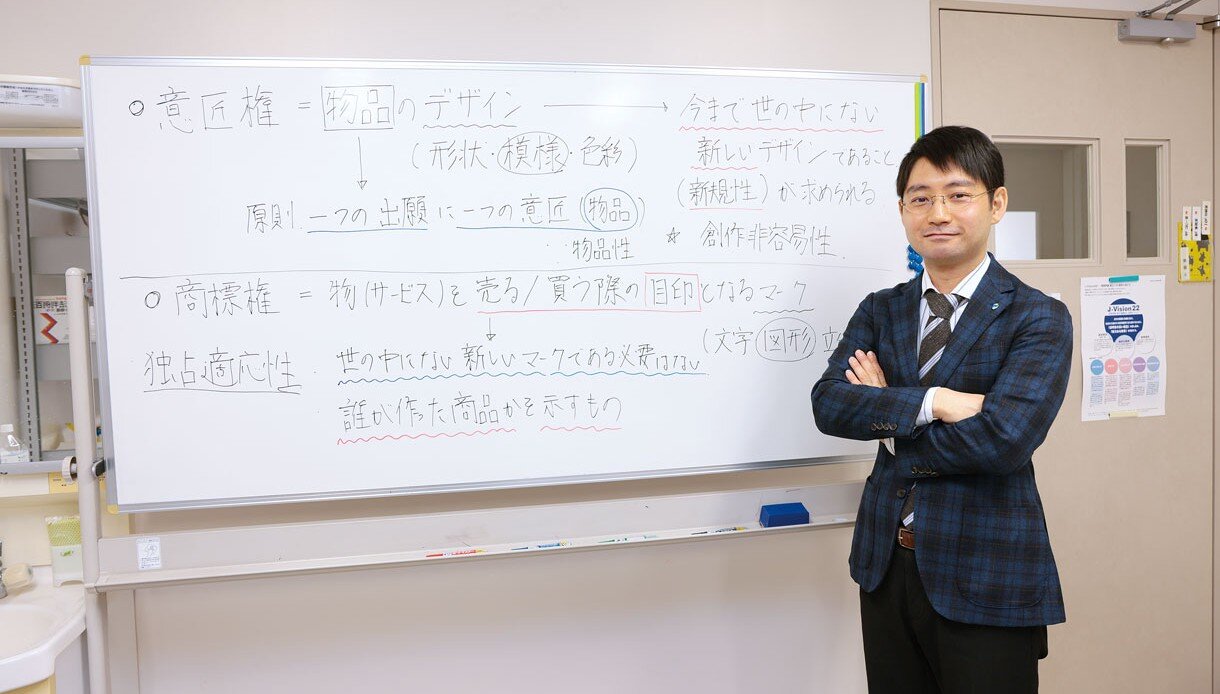 ○ 意匠権 = 物品のデザイン → 今まで世の中にない
(形状・模様・色彩) 新しいデザインであること
(新規性)が求められる
原則 一つの出願に一つの意匠(物品)
∴物品性 ☆ 創作非容易性
○ 商標権 = 物(サービス)を売る/買う際の目印となるマーク
(文字 図形
独占適応性 世の中にない新しいマークである必要はない
誰が作った商品かを示すもの
J-Vision22